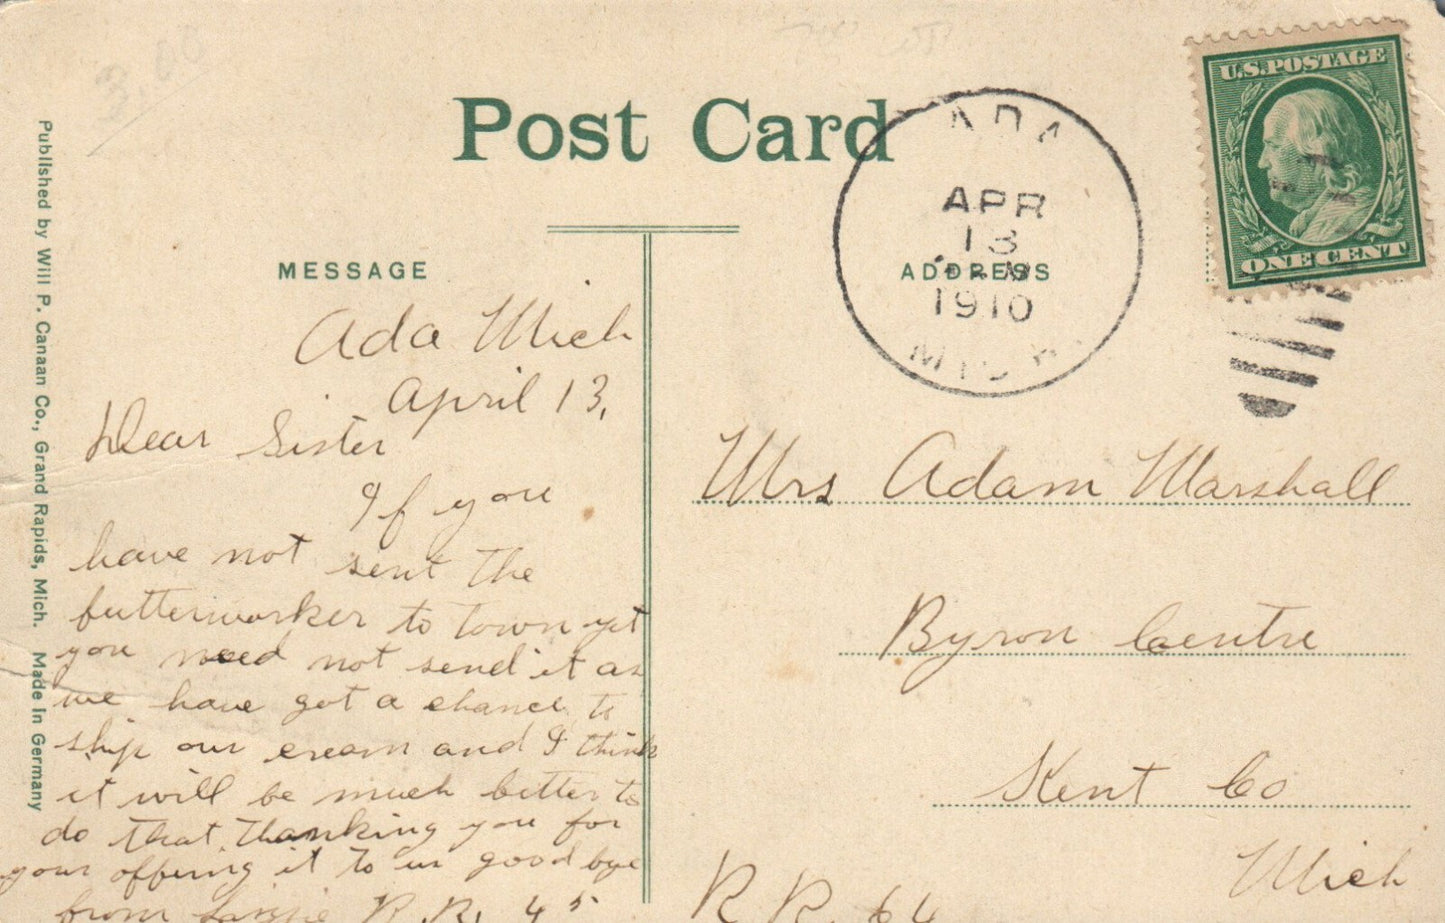 3.00
Post Card
Published by Will P. Canaan Co., Grand Rapids, Mich. Made in Germany
MESSAGE
Ada Mich
April 13,
Dear Sister
If you
have not sent the
butterworker to town yet
you need not send it as
we have got a chance to
ship our cream and I think
it will be much better to
do that. Thanking you for
your offering it to us good bye
from R.R. 45
ADA
APR
13
1910
MICH.
ADDRESS
U.S. POSTAGE
ONE CENT
Mrs Adam Marshall
Byron Centre
Kent Co
Mich
R R. 64